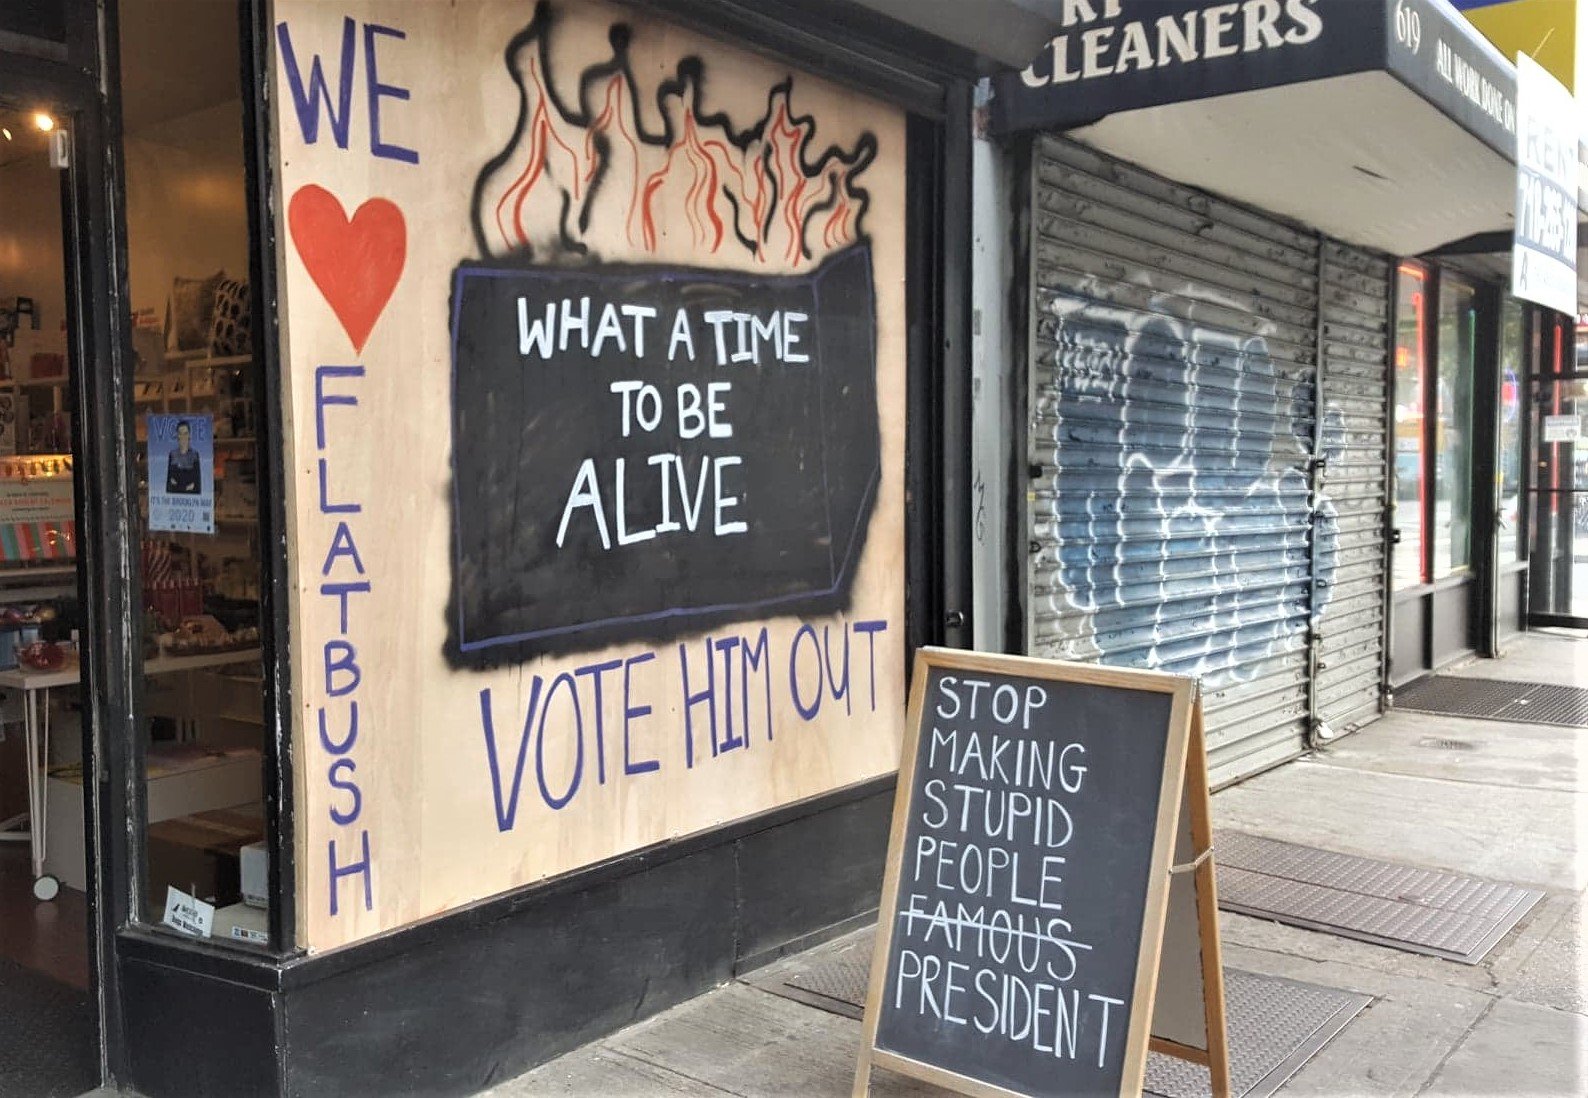 WE
FLATBUSH
WHAT A TIME
TO BE
ALIVE
VOTE HIM OUT
STOP
MAKING
STUPID
PEOPLE
FAMOUS
PRESIDENT
CLEANERS
619
ALL WORK DONE ON
RENT
VOTE
IT'S THE BROOKLYN WAY
2020